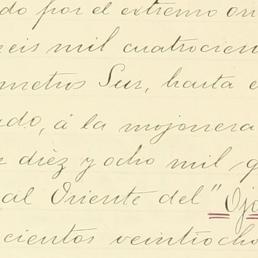 do por el extremo ori
reis mil cuatrocien
metros Sur, hasta e
ado, á la mojonera
diez y ocho mil q
al Oriente del "Ojo
cientos veintiocho